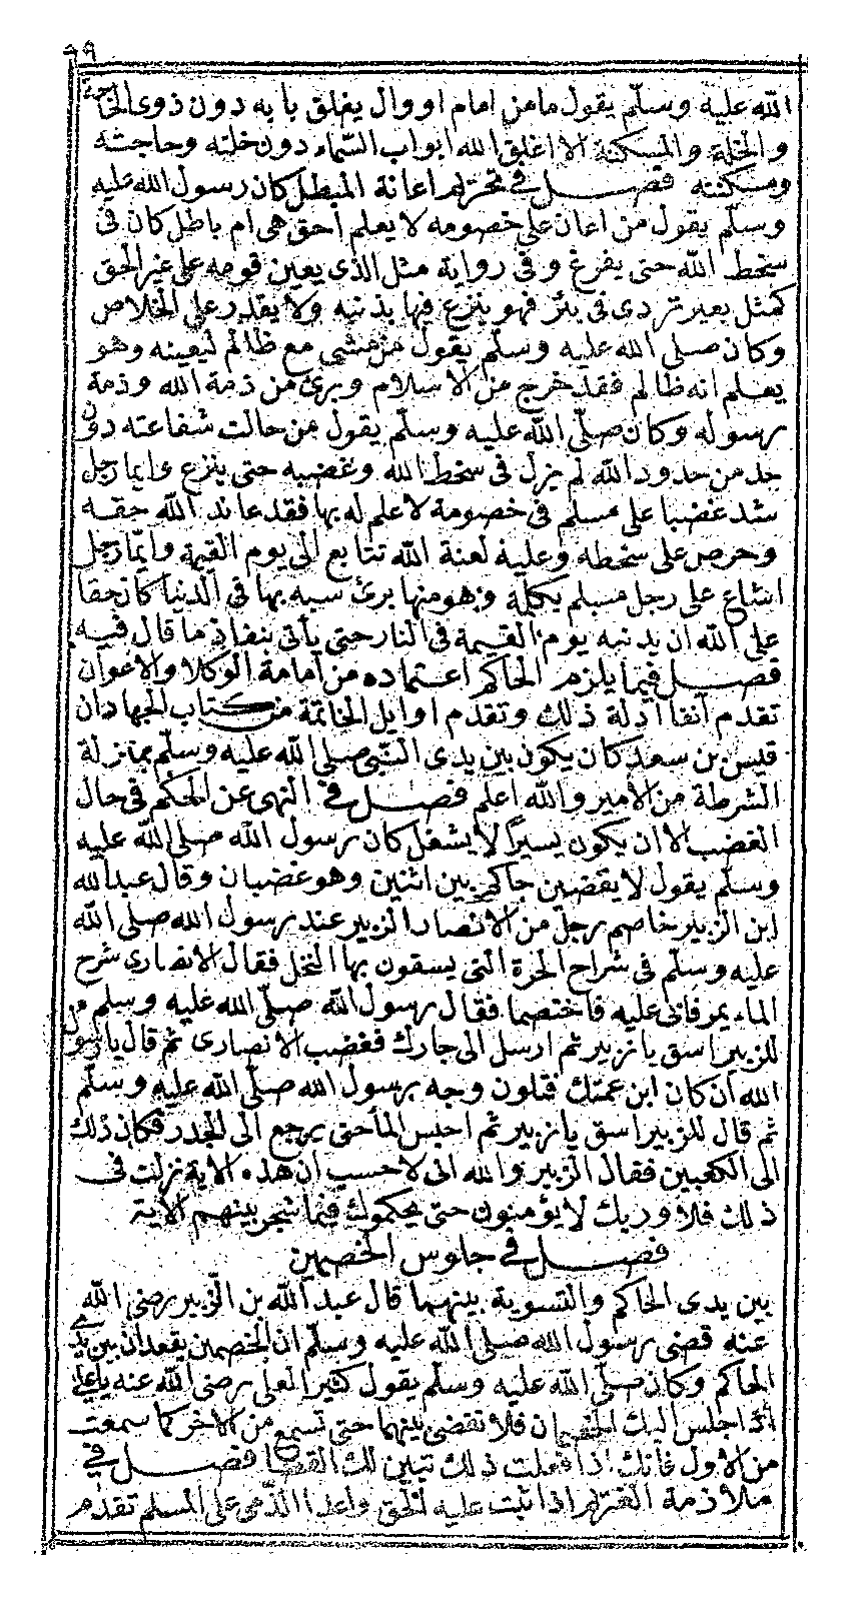 ٩٩
الله عليه وسلم يقول ما من امام او وال يغلق بابه دون ذوى الحاجة
والخلة والمسكنة الا اغلق الله ابواب السماء دون خلته وحاجته
ومسكنته فصل في تحريم اعانة المبطل كان رسول الله عليه
وسلم يقول من اعان على خصومه لا يعلم أحق هى ام باطل كان فى
سخط الله حتى يفرغ وفى رواية مثل الذى يعين قومه على غير الحق
كمثل بعير تردى فى بئر فهو ينزع فيها بذنبه ولا يقدر على الخلاص
وكان صلى الله عليه وسلم يقول من مشى مع ظالم ليعينه وهو
يعلم انه ظالم فقد خرج من الاسلام وبرئ من ذمة الله وذمة
رسوله وكان صلى الله عليه وسلم يقول من حالت شفاعته دون
حد من حدود الله لم يزل فى سخط الله وغضبه حتى ينزع وايما رجل
شد غضبا على مسلم فى خصومة لا علم له بها فقد عاند الله حقه
وحرص على سخطه وعليه لعنة الله تتابع الى يوم القيمة وايما رجل
اشاع على رجل مسلم بكلمة وهو منها برئ سبه بها فى الدنيا كان حقا
على الله ان يدنيه يوم القيمة فى النار حتى يأتى بنفاذ ما قال فيه
فصل فيما يلزم الحاكم اعتماده من امامة الوكلا والاعوان
تقدم آنفا ادلة ذلك وتقدم اوايل الخاتمة من كتاب الجهاد ان
قيس بن سعد كان يكون بين يدى النبى صلى الله عليه وسلم بمنزلة
الشرطة من الامير والله اعلم فصل فى النهى عن الحكم فى حال
الغضب الا ان يكون يسيرا لا يشغل كان رسول الله صلى الله عليه
وسلم يقول لا يقضين حاكم بين اثنين وهو غضبان وقال عبد الله
ابن الزبير خاصم رجل من الانصار الزبير عند رسول الله صلى الله
عليه وسلم فى شراج الحرة التى يسقون بها النخل فقال الانصارى شرح
الماء يمر فابى عليه فاختصما فقال رسول الله صلى الله عليه وسلم
للزبير اسق يا زبير ثم ارسل الى جارك فغضب الانصارى ثم قال يا رسول
الله ان كان ابن عمتك فتلون وجه رسول الله صلى الله عليه وسلم
ثم قال للزبير اسق يا زبير ثم احبس الما حتى يرجع الى الجدر فكان ذلك
الى الكعبين فقال الزبير والله انى لا حسب ان هذه الاية نزلت فى
ذلك فلا وربك لا يؤمنون حتى يحكموك فيما شجر بينهم الاية
فصل فى جلوس الخصمين
بين يدى الحاكم والتسوية بينهما قال عبد الله بن الزبير رضى الله
عنه قضى رسول الله صلى الله عليه وسلم ان الخصمين يقعدان بين يدى
الحاكم وكان صلى الله عليه وسلم يقول كثيرا لعلى رضى الله عنه يا على
اذا جلس اليك الخصمان فلا تقضى بينهما حتى تسمع من الاخر كما سمعت
من الاول فانك اذا فعلت ذلك تبين لك القضا فصل فى
ملازمة الغريم اذا ثبت عليه الحق واعدا الذمى على المسلم تقدم